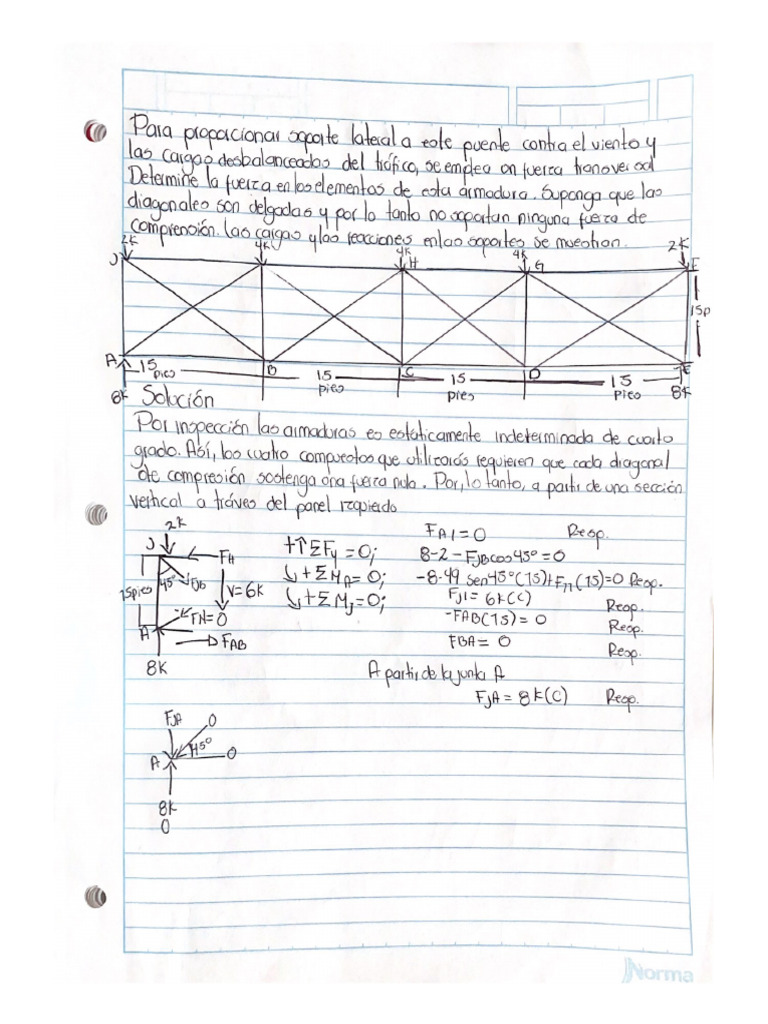 Para proporcionar soporte lateral a este puente contra el viento y
las cargas desbalanceadas del tráfico, se emplea un fuerza transversal
Determine la fuerza en los elementos de esta armadura. Suponga que las
diagonales son delgadas y por lo tanto no soportan ninguna fuerza de
comprención. Las cargas y las reacciones en los soportes se muestran.
2k 4k 4k 4k 2k
J H G F
15p
A 15 pies B 15 pies C 15 pies D 15 pies E
8k 8k
Solución
Por inspección las armaduras es estáticamente indeterminada de cuarto
grado. Así, los cuatro compuestos que utilizarás requieren que cada diagonal
de compresión sostenga una fuerza nula. Por, lo tanto, a partir de una sección
vertical a tráves del panel izquierdo
2k
FAI=0 Resp.
J FH +↑ΣFy=0; 8-2-FJBcos45°=0
15pies 45° FJB V=6k ↓+ΣMA=0; -8.49 sen45°(15)+FJI(15)=0 Resp.
FN=0 ↓+ΣMJ=0; FJI=6k(C) Resp.
A FAB -FAB(15)=0 Resp.
8k FBA=0 Resp.
A partir de la junta A
FJA=8k(C) Resp.
FJA 0
45°
A 0
8k
0
Norma